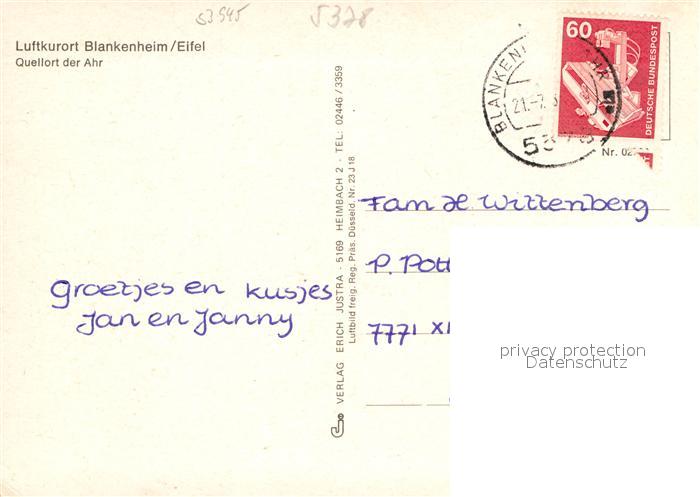 53945
5378
Luftkurort Blankenheim/Eifel
Quellort der Ahr
60
DEUTSCHE BUNDESPOST
BLANKEN
AHR
21.-7.
53
Nr. 02
VERLAG ERICH JUSTRA · 5169 HEIMBACH 2 · TEL: 02446/3359
Luftbild freig. Reg. Präs. Düsseld. Nr. 23 J 18
Fam H. Wittenberg
P. Pott
7771 X
groetjes en kusjes
Jan en Janny
privacy protection
Datenschutz